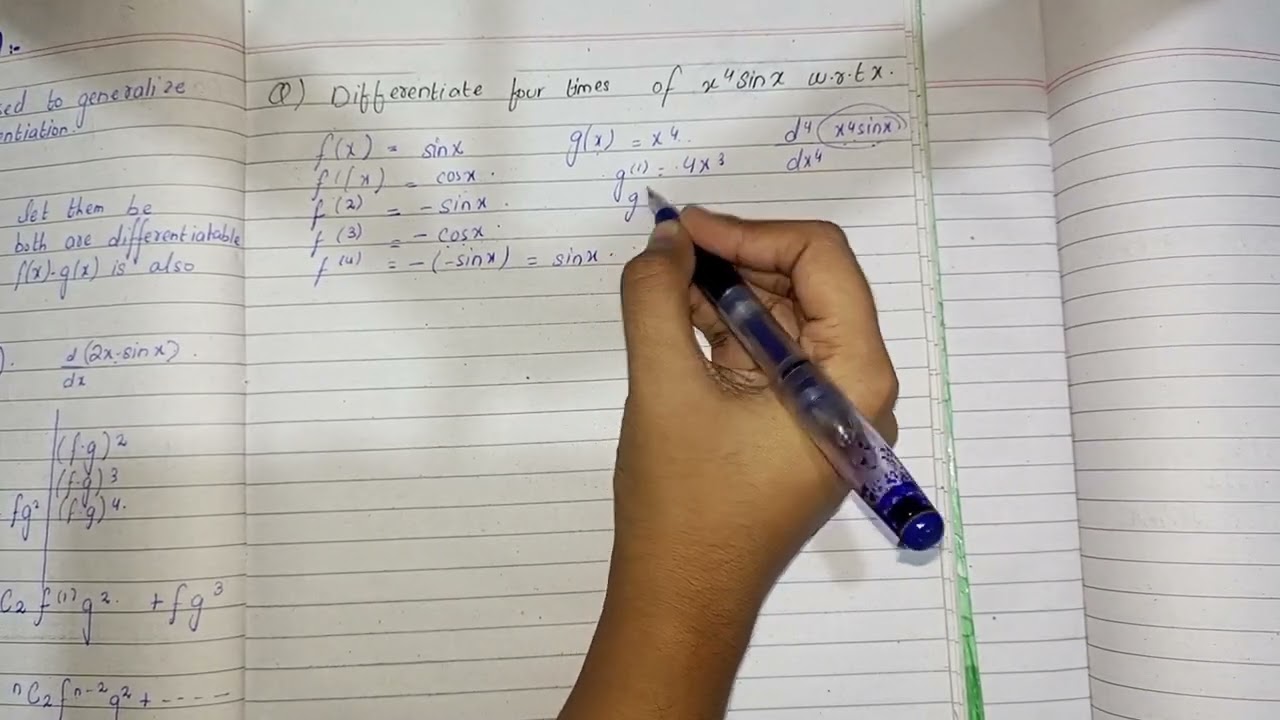 :-
sed to generalize
entiation.
Let them be
both are differentiatable
f(x)·g(x) is also
). d(2x·sinx).
dx
(f·g)2
(f·g)3
fg² (f·g)4.
C2 f(1)g2. + fg3
nC2 fn-2 g2 + ----
Q) Differentiate four times of x4sinx w.r.t x.
f(x) = sinx
f'(x) = cosx.
f(2) = -sinx.
f(3) = -cosx.
f(4) = -(-sinx) = sinx.
g(x) = x4.
g(1) = 4x3
g
d4 (x4sinx)
dx4